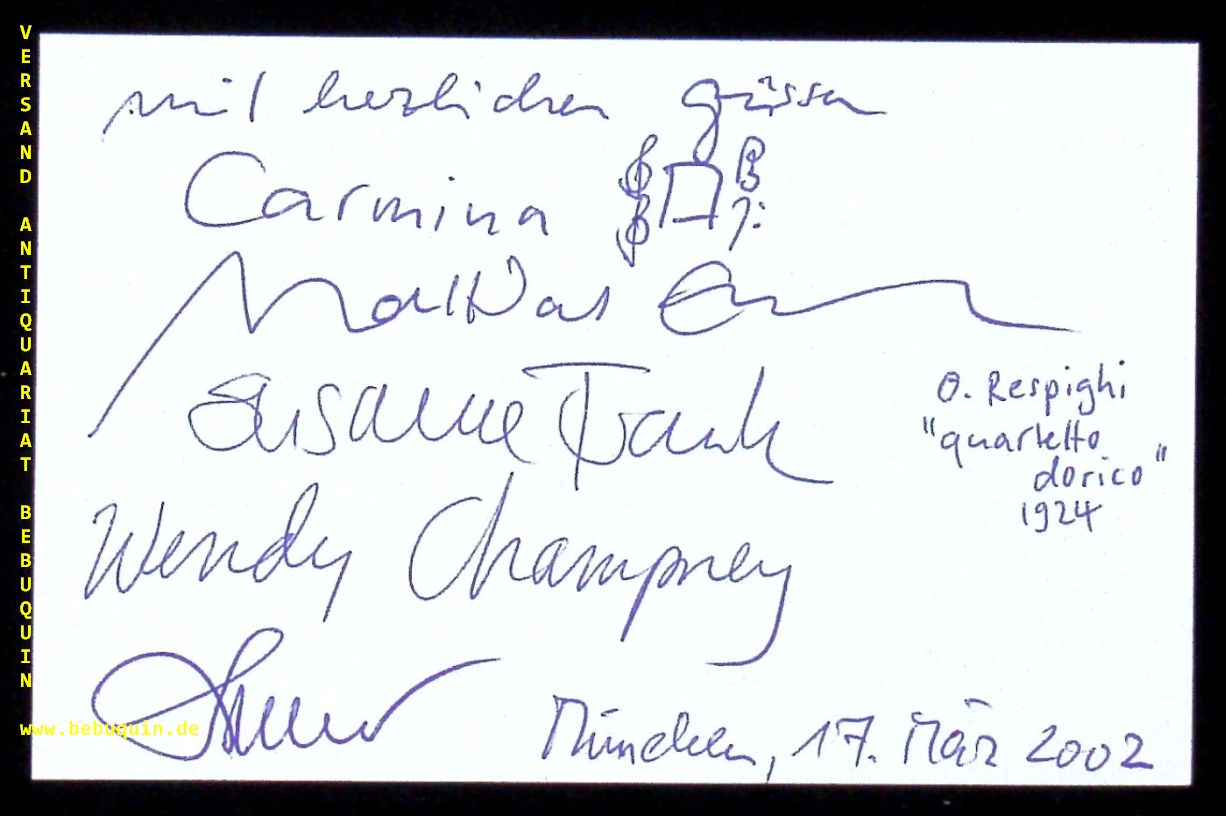 mit herzlichen grüssen
Carmina
Matthias
Susanne Frank
Wendy Champney
O. Respighi
"quartetto
dorico"
1924
München, 17. März 2002
VERSAND ANTIQUARIAT BEBUQUIN
www.bebuquin.de